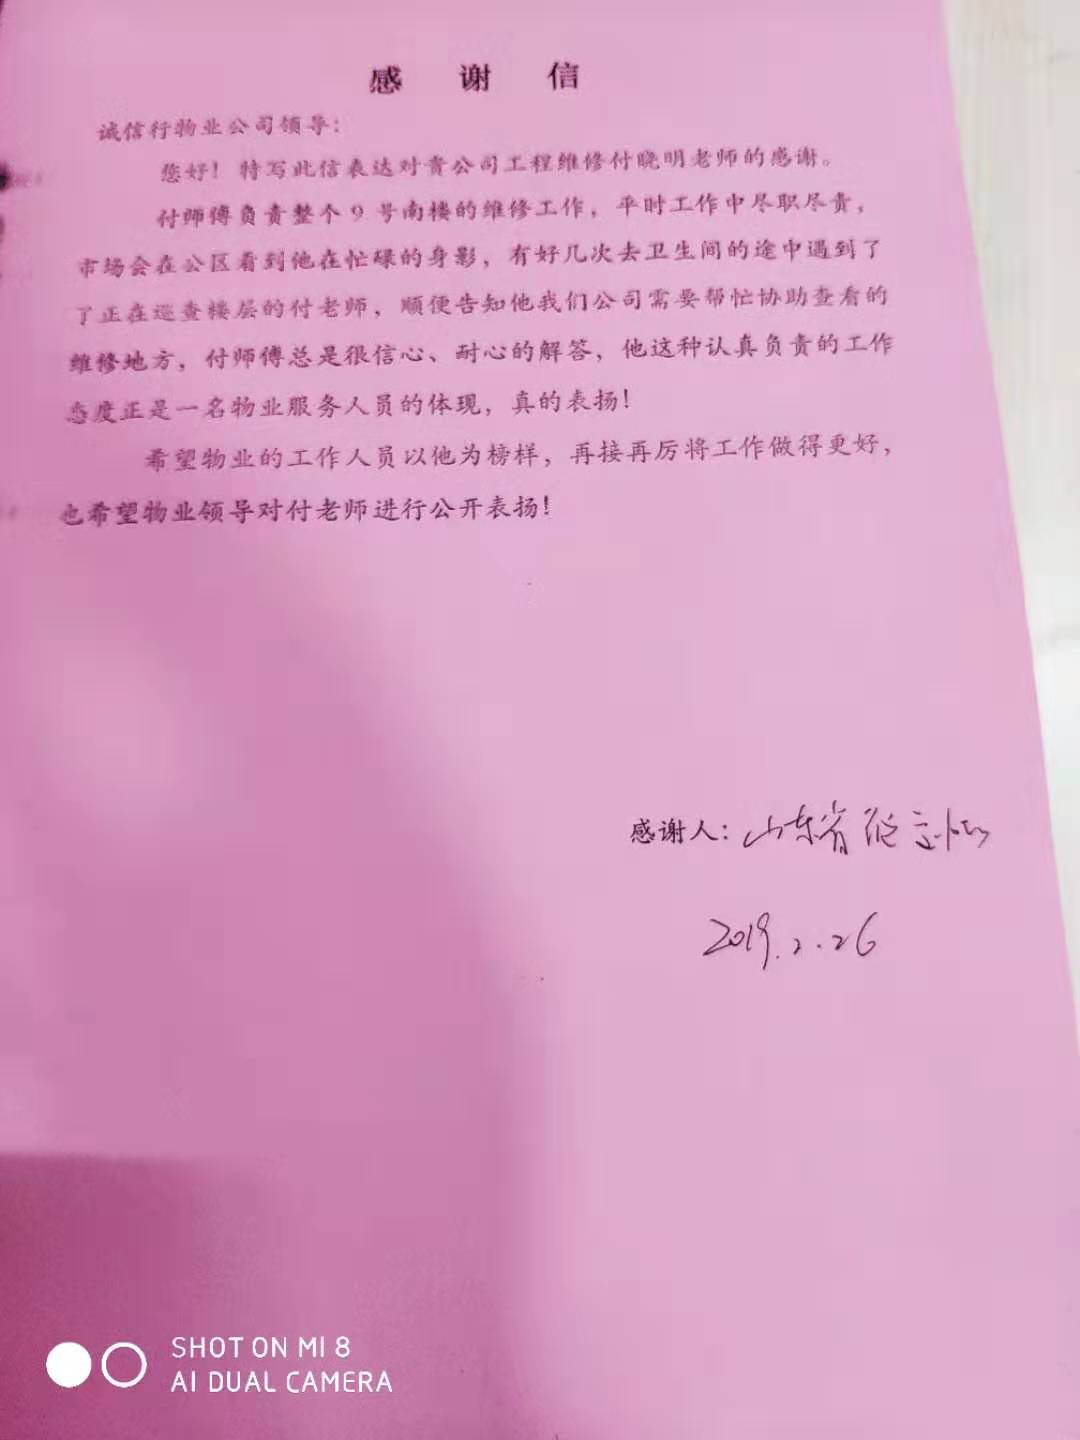 感 谢 信
诚信行物业公司领导：
您好！特写此信表达对贵公司工程维修付晓明老师的感谢。
付师傅负责整个9号南楼的维修工作，平时工作中尽职尽责，
市场会在公区看到他在忙碌的身影，有好几次去卫生间的途中遇到了
了正在巡查楼层的付老师，顺便告知他我们公司需要帮忙协助查看的
维修地方，付师傅总是很信心、耐心的解答，他这种认真负责的工作
态度正是一名物业服务人员的体现，真的表扬！
希望物业的工作人员以他为榜样，再接再厉将工作做得更好，
也希望物业领导对付老师进行公开表扬！
感谢人：山东省
2019.2.26
SHOT ON MI 8
AI DUAL CAMERA